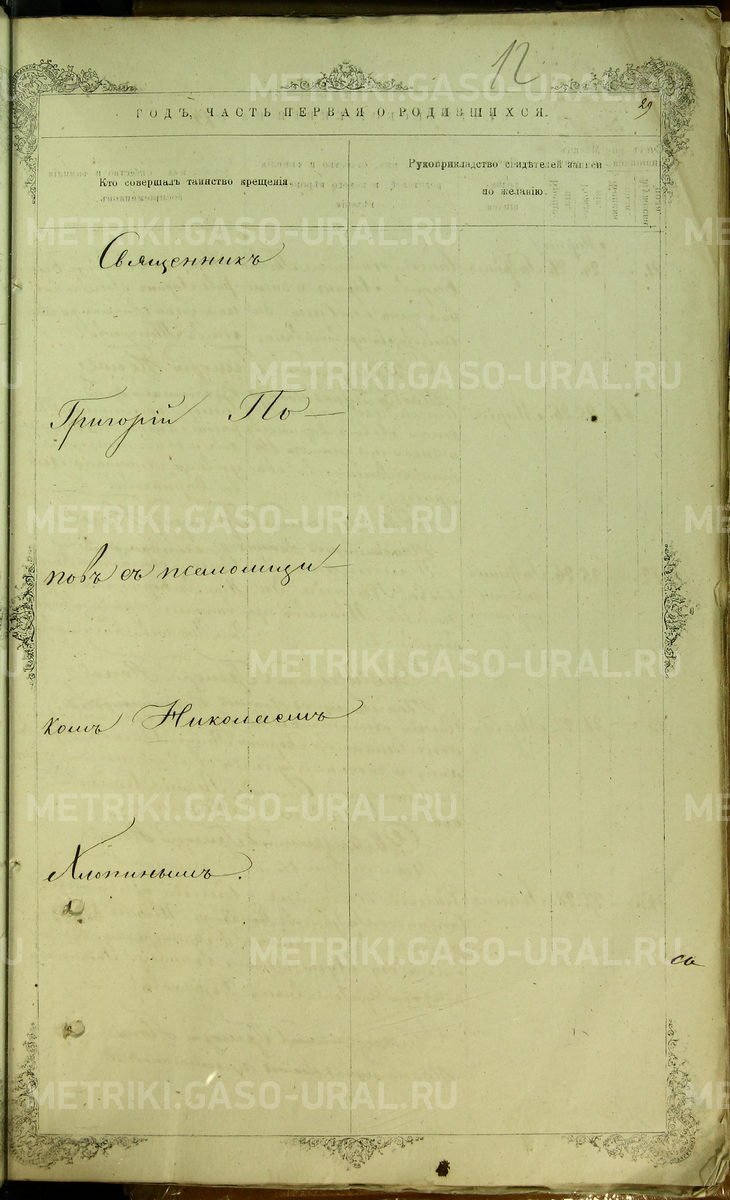 12
29
ГОДЪ, ЧАСТЬ ПЕРВАЯ О РОДИВШИХСЯ.
Кто совершалъ таинство крещенія.
Рукоприкладство свидѣтелей записи
по желанію.
Священникъ
Григорій По-
повъ съ псаломщи-
комъ Николаемъ
Хлопинымъ.
со
METRIKI.GASO-URAL.RU